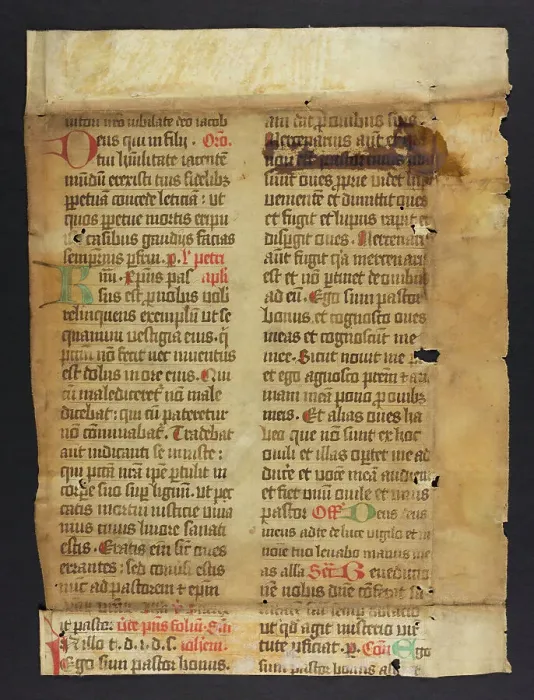 iutori nr̄o iubilate deo iacob
Deus qui in filij . Oro.
tui hūilitate iacentē
mūdū erexisti tuis fidelibꝫ
ꝑpetuā concede leticiā : ut
quos ꝑpetue mortis eripu
casibus gaudijs facias
sempit̄nis ꝑfrui. p. l' petri
Kmi . Xp̄us pas apl̓i
sus est ꝓ nobis uobis
relinquens exemplū ut se
quamini uestigia eius . q̄
pctm̄ nō fecit nec inuentus
est dolus in ore eius . Qui
cū malediceret̄ nō male
dicebat : qui cū pateretur
nō cōminabat̄ . Tradebat
aut̄ iudicanti se iniuste :
qui pctā nr̄a ip̄e ꝑtulit in
corꝑe suo suꝑ lignū . ut pec
catis mortui iusticie uiua
mus cuius liuore sanati
estis . Eratis em̄ sic̄ oues
errantes : sed conu̓si estis
nūc ad pastorem et ep̄m
it pastor
Ego sum pastor bonus .
aīā dat ꝓ ouibus suis .
Mercenarius aūt et q̄
non est pastor cuius nō
sunt oues ꝓprie uidet lupū
uenientē et dimittit oues
et fugit et lupus rapit et
disꝑgit oues . Mercenari
aūt fugit q̓a mercenari
est et nō ꝑtinet de ouibꝫ
ad eū . Ego sum pastor
bonus et cognosco oues
meas et cognoscūt me
mee . Sicut nouit me p̄
et ego agnosco prēm ⁊ aī
mam meā pono ꝓ ouibꝫ
meis . Et alias oues ha
beo que nō sunt ex hoc
ouili et illas oꝑtet me ad
ducꝰe et uocē meā audient
et fiet unū ouile et unus
pastor Off̄ Deus deus
meus ad te de luce uigilo et in
noīe tuo leuabo manus me
as alla Sēc̄ Benedictio
nē nobis dn̄e cōferat sa
ut qd̓ agit misterio uir
tute ꝑficiat . p. Cōm Ego
sum pastor bonus alla